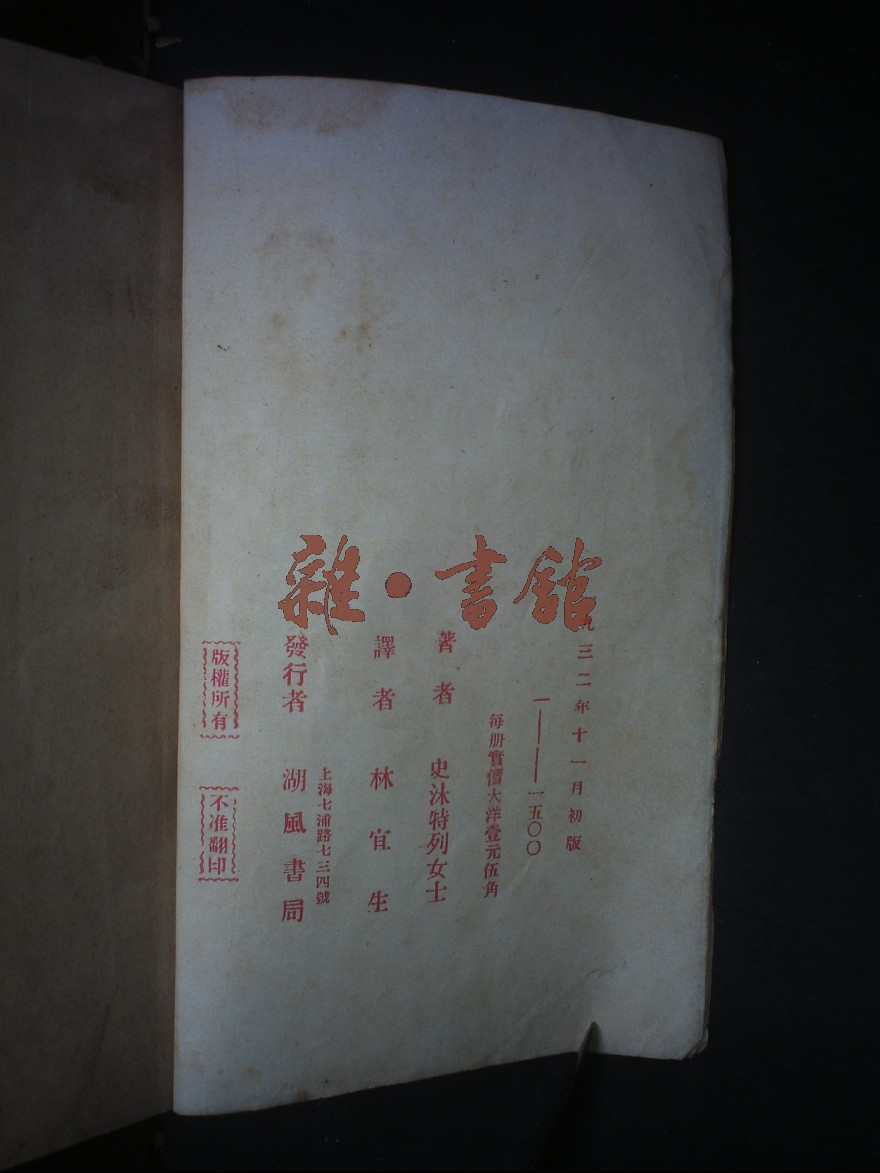 雜·書館
九三二年十一月初版
一——一五〇〇
每册實價大洋壹元伍角
著者 史沐特列女士
譯者 林宜生
上海七浦路七三四號
發行者 湖風書局
版權所有
不准翻印